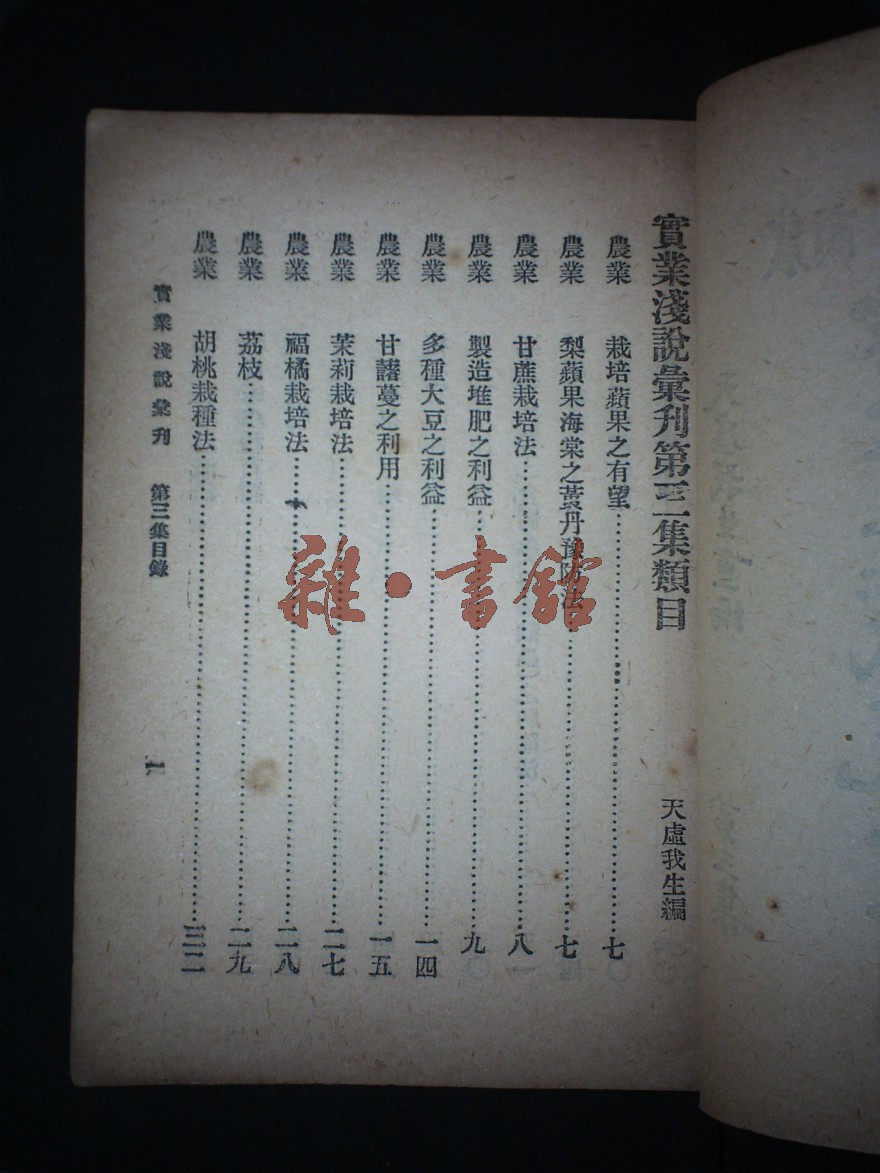 實業淺說彙刊第三集類目
天虛我生編
農業 栽培蘋果之有望……七
農業 梨蘋果海棠之黃丹豫防法……七
農業 甘蔗栽培法……八
農業 製造堆肥之利益……九
農業 多種大豆之利益……一四
農業 甘藷蔓之利用……一五
農業 茉莉栽培法……二七
農業 福橘栽培法……二八
農業 荔枝……二九
農業 胡桃栽種法……三二
實業淺說彙刊 第三集目錄
一
雜·書館